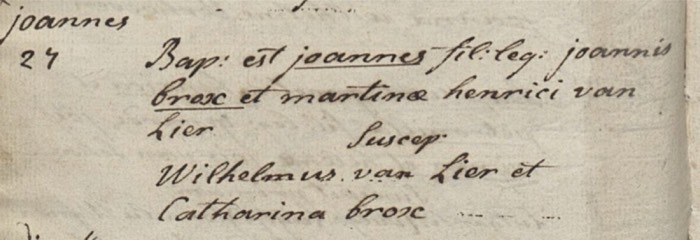 joannes
27 Bap: est joannes fil: leg: joannis
brox et martinæ henrici van
Lier
Suscep:
Wilhelmus van Lier et
Catharina brox